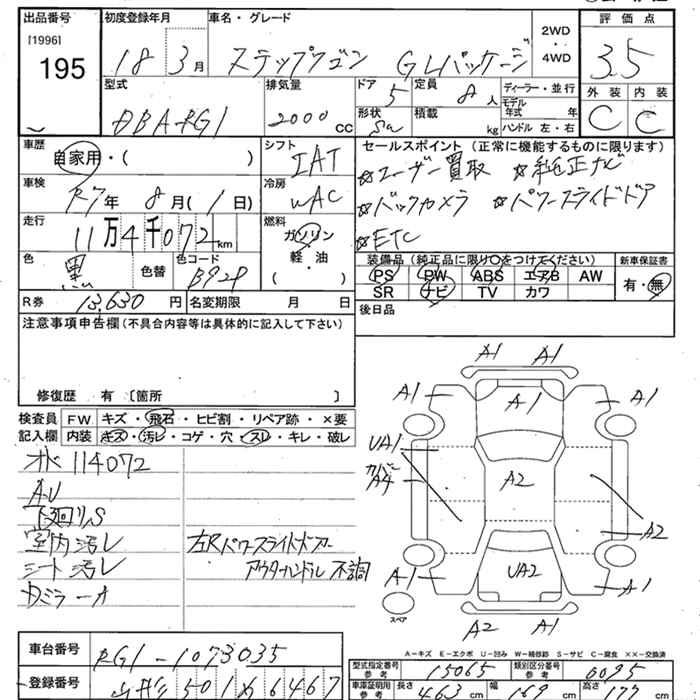 出品番号
[1996]
195
初度登録年月
18 3月
車名・グレード
ステップワゴン GLパッケージ
2WD
・
4WD
評価点
3.5
型式
DBA-RG1
排気量
2000 cc
ドア
5
定員
8人
形状
積載
kg
ディーラー・並行
モデル年式 年
ハンドル 左・右
外装 内装
C C
車歴
自家用・( )
シフト
IAT
冷房
WAC
車検
R7年 8月( 1日)
走行
11万4千072km
燃料
ガソリン
軽・油
( )
色
黒
色替
色コード
B92P
R券
13,630円
名変期限 月 日
セールスポイント (正常に機能するものに限ります)
☆ユーザー買取 ☆純正ナビ
☆バックカメラ ☆パワースライドドア
☆ETC
装備品(純正品に限り○をつけてください)
PS PW ABS エアB AW
SR ナビ TV カワ
新車保証書
有・無
後日品
注意事項申告欄(不具合内容等は具体的に記入して下さい)
修復歴 有 [箇所 ]
検査員
記入欄
FW キズ・飛石・ヒビ割・リペア跡・×要
内装 キズ・汚レ・コゲ・穴・スレ・キレ・破レ
114072
下廻り、S
室内汚レ
シート汚レ
左Rパワースライドドアー
アウターハンドル不調
A1 A1
A1 A1 A1
UA1
A4
A2
A2
A1 UA2 A1
スペア
A2 A1
A-キズ E-エクボ U-凹み W-補修跡 S-サビ C-腐食 ××-交換済
車台番号
RG1-1073035
登録番号
山形501 66467
型式指定番号
参考
15065
類別区分番号
参考
0095
車庫証明用
参考
長さ 463cm 幅 169cm 高さ 177cm